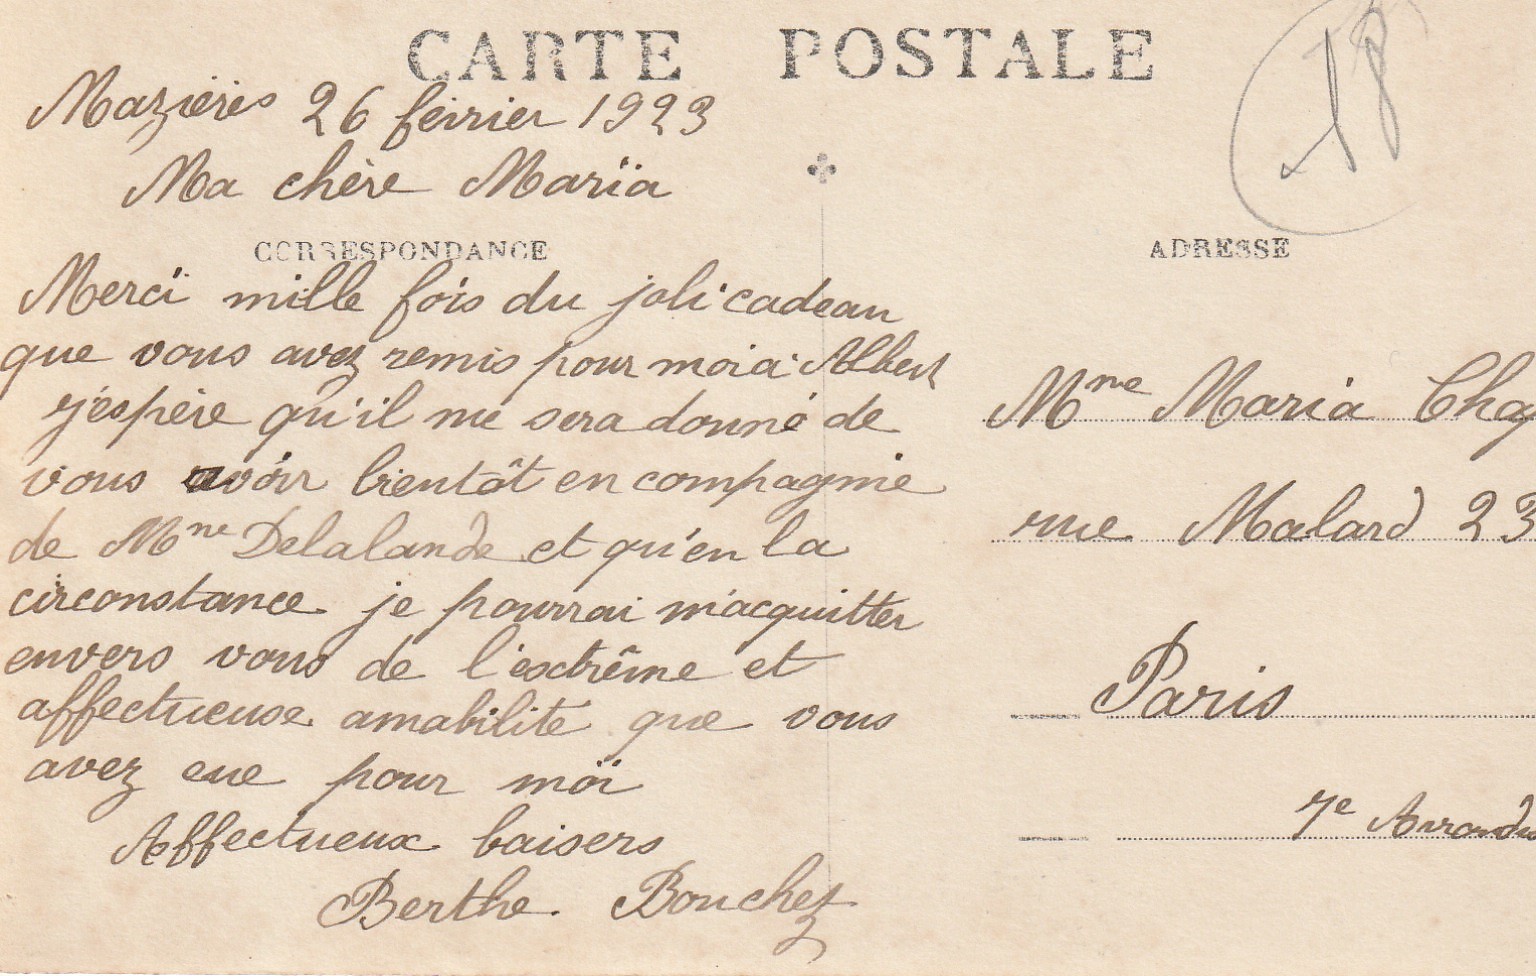 CARTE POSTALE
18
Mazières 26 février 1923
Ma chère Maria
CORRESPONDANCE
Merci mille fois du joli cadeau
que vous avez remis pour moi à Albert
j'espère qu'il me sera donné de
vous avoir bientôt en compagnie
de Mme Delalande et qu'en la
circonstance je pourrai m'acquitter
envers vous de l'extrême et
affectueuse amabilité que vous
avez eue pour moi
Affectueux baisers
Berthe Bouchez
ADRESSE
Mme Maria
rue Malard 23
Paris
7e